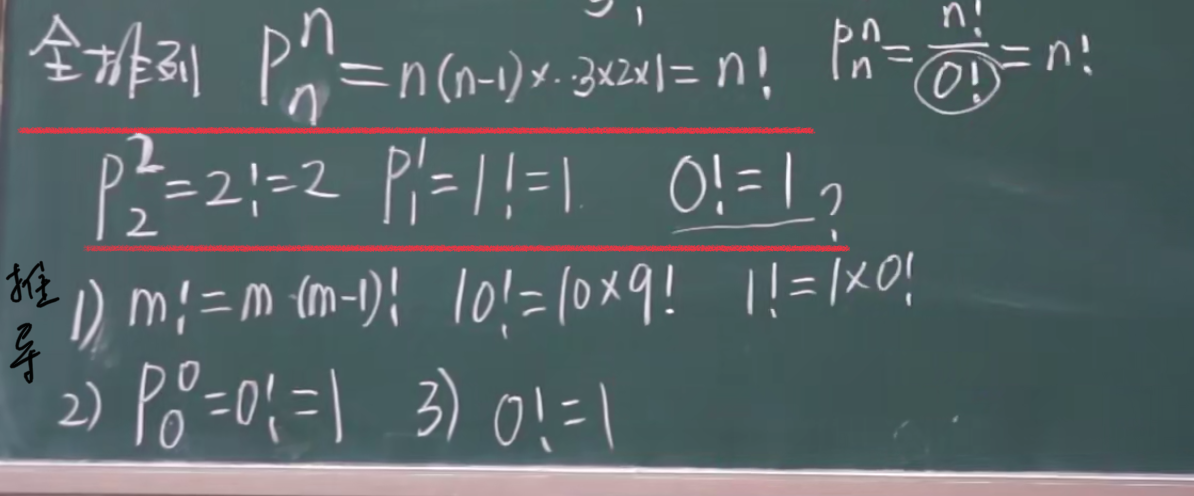 全排列 P_n^n = n(n-1)×··3×2×1 = n! P_n^n = n!/0! = n!
P_2^2 = 2! = 2 P_1^1 = 1! = 1. 0! = 1?
推导 1) m! = m·(m-1)! 10! = 10×9! 1! = 1×0!
2) P_0^0 = 0! = 1 3) 0! = 1